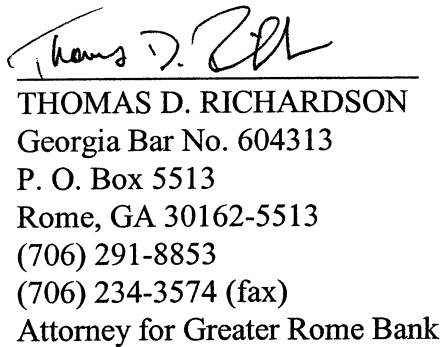 Thomas D. Rich
THOMAS D. RICHARDSON
Georgia Bar No. 604313
P. O. Box 5513
Rome, GA 30162-5513
(706) 291-8853
(706) 234-3574 (fax)
Attorney for Greater Rome Bank